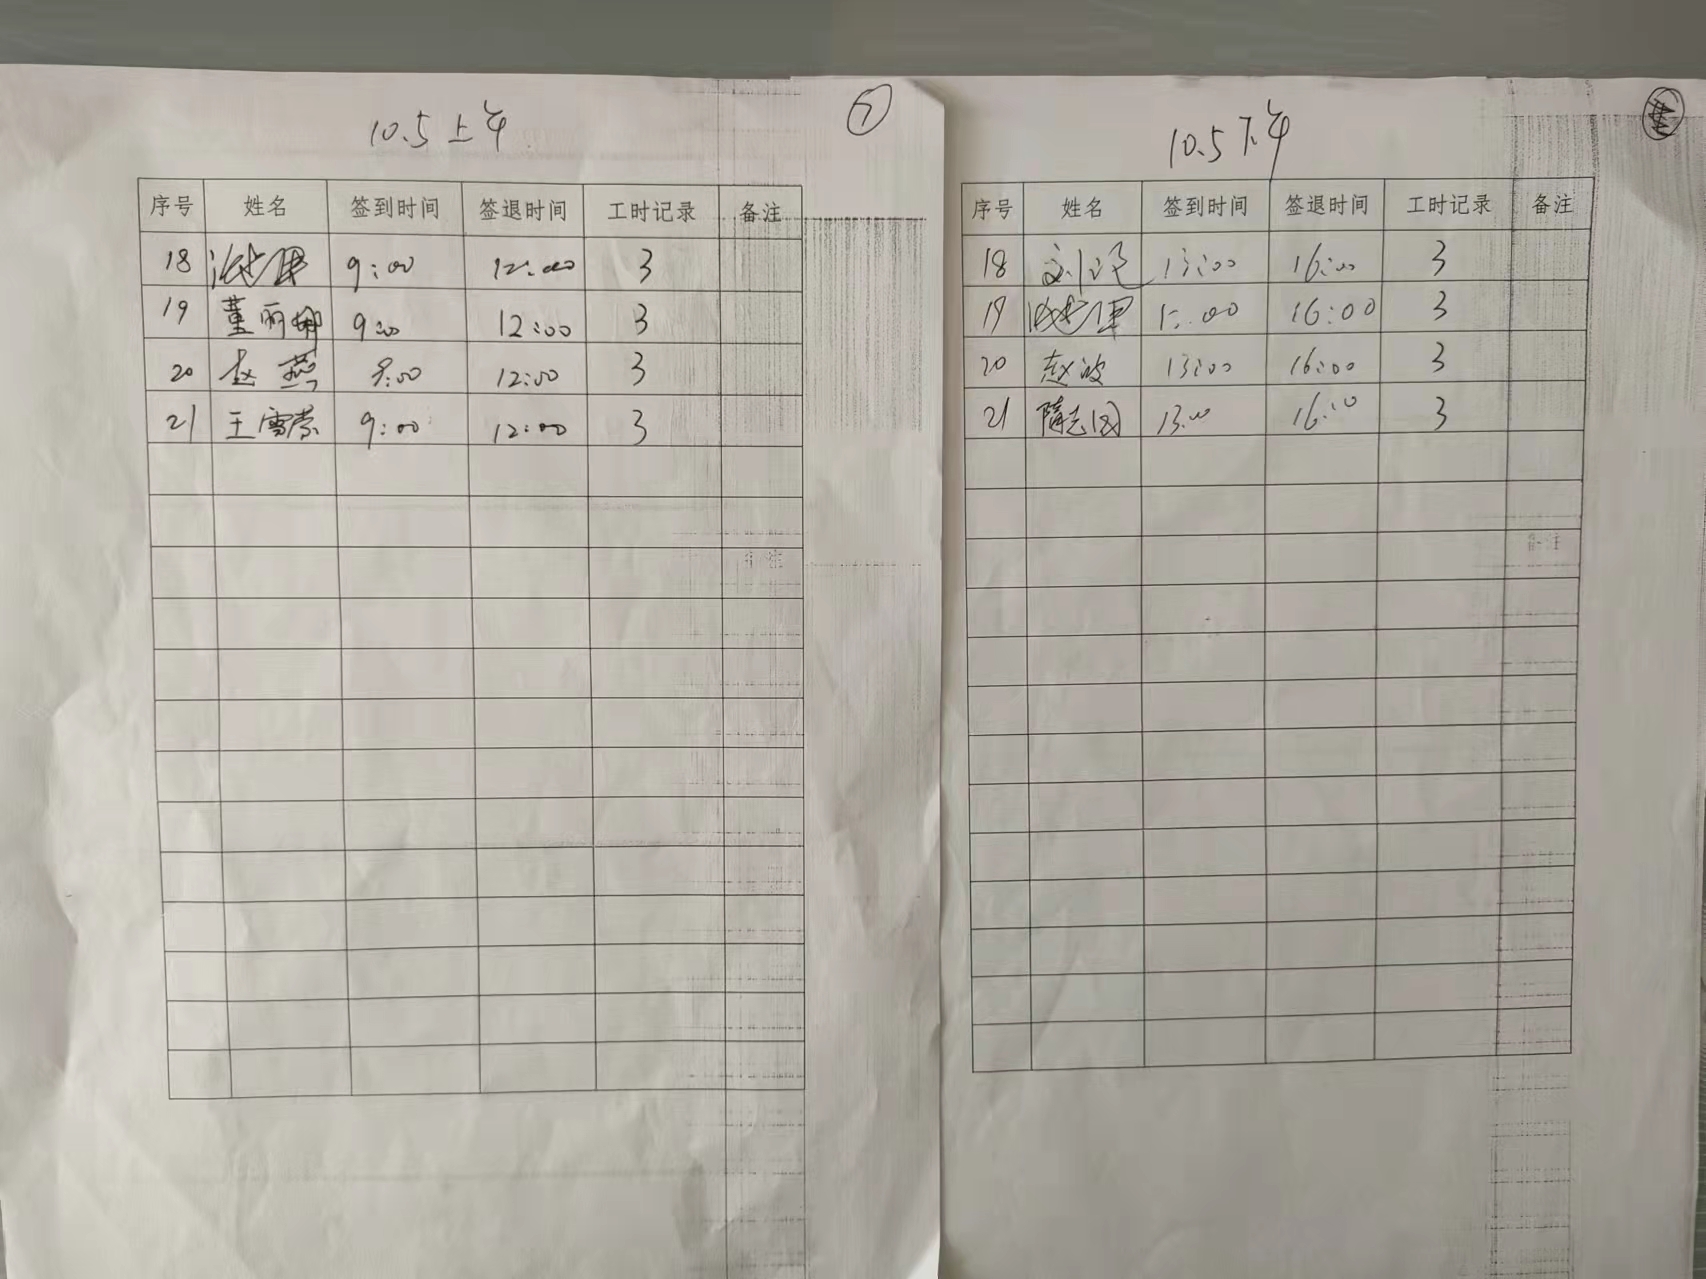 10.5上午 ⑦
序号 姓名 签到时间 签退时间 工时记录 备注
18 9:00 12:00 3
19 董丽娜 9:00 12:00 3
20 赵燕 9:00 12:00 3
21 王雪蒙 9:00 12:00 3
备注
10.5下午
序号 姓名 签到时间 签退时间 工时记录 备注
18 13:00 16:00 3
19 16:00 3
20 赵波 13:00 16:00 3
21 隋志国 13:00 16:00 3
备注